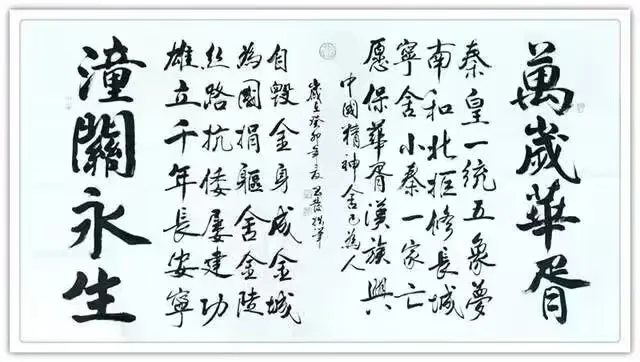 萬歲華胥
秦皇一統五象夢
南和北拒修長城
寧舍小秦一家亡
愿保華胥漢族興
中國精神舍己為人
歲在癸卯年夏
自毀金身成金城
為國捐軀舍金陵
丝路抗倭屢建功
雄立千年長安寧
潼關永生